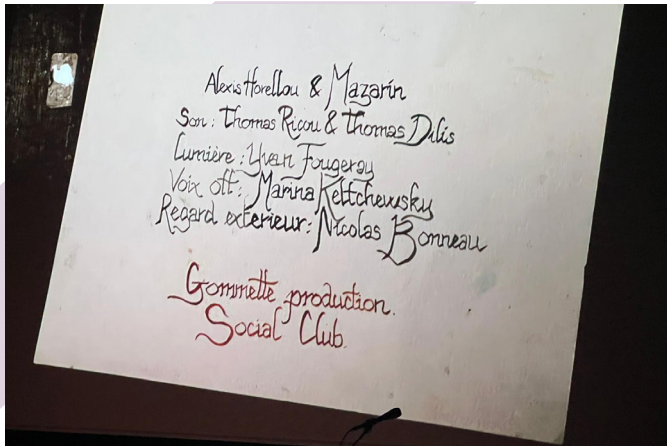 Alexis Horellou & Mazarin
Son : Thomas Ricou & Thomas Dilis
Lumière : Yvan Fougeray
Voix off : Marina Keltchewsky
Regard exterieur : Nicolas Bonneau
Gommette production.
Social Club.